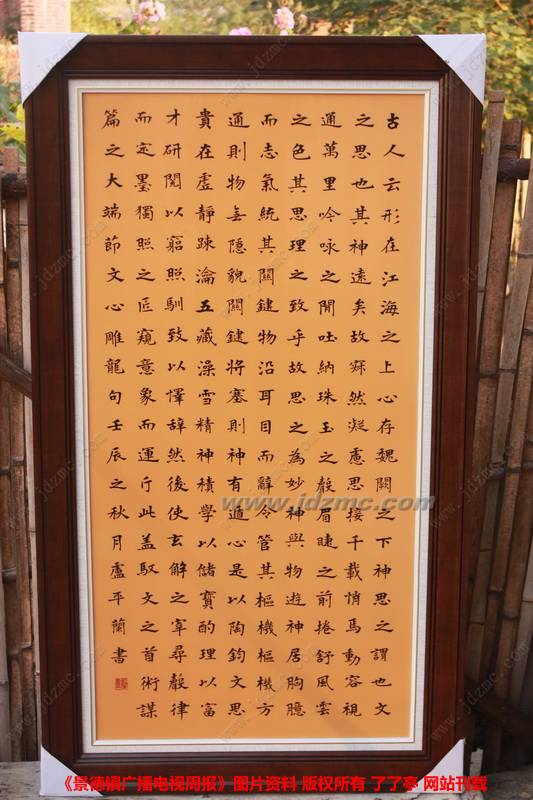 古人云形在江海之上心存魏闕之下神思之謂也文
之思也其神遠矣故寂然凝慮思接千載悄焉動容視
通萬里吟咏之閒吐納珠玉之聲眉睫之前捲舒風雲
之色其思理之致乎故思之為妙神與物遊神居胸臆
而志氣統其關鍵物沿耳目而辭令管其樞機樞機方
通則物無隱貌關鍵將塞則神有遁心是以陶鈞文思
貴在虛靜疎瀹五藏澡雪精神積學以儲寶酌理以富
才研閱以窮照馴致以懌辭然後使玄解之宰尋聲律
而定墨獨照之匠窺意象而運斤此蓋馭文之首術謀
篇之大端節文心雕龍句壬辰之秋月盧平蘭書
www.jdzmc.com
《景德镇广播电视周报》图片资料 版权所有 了了亭 网站刊载